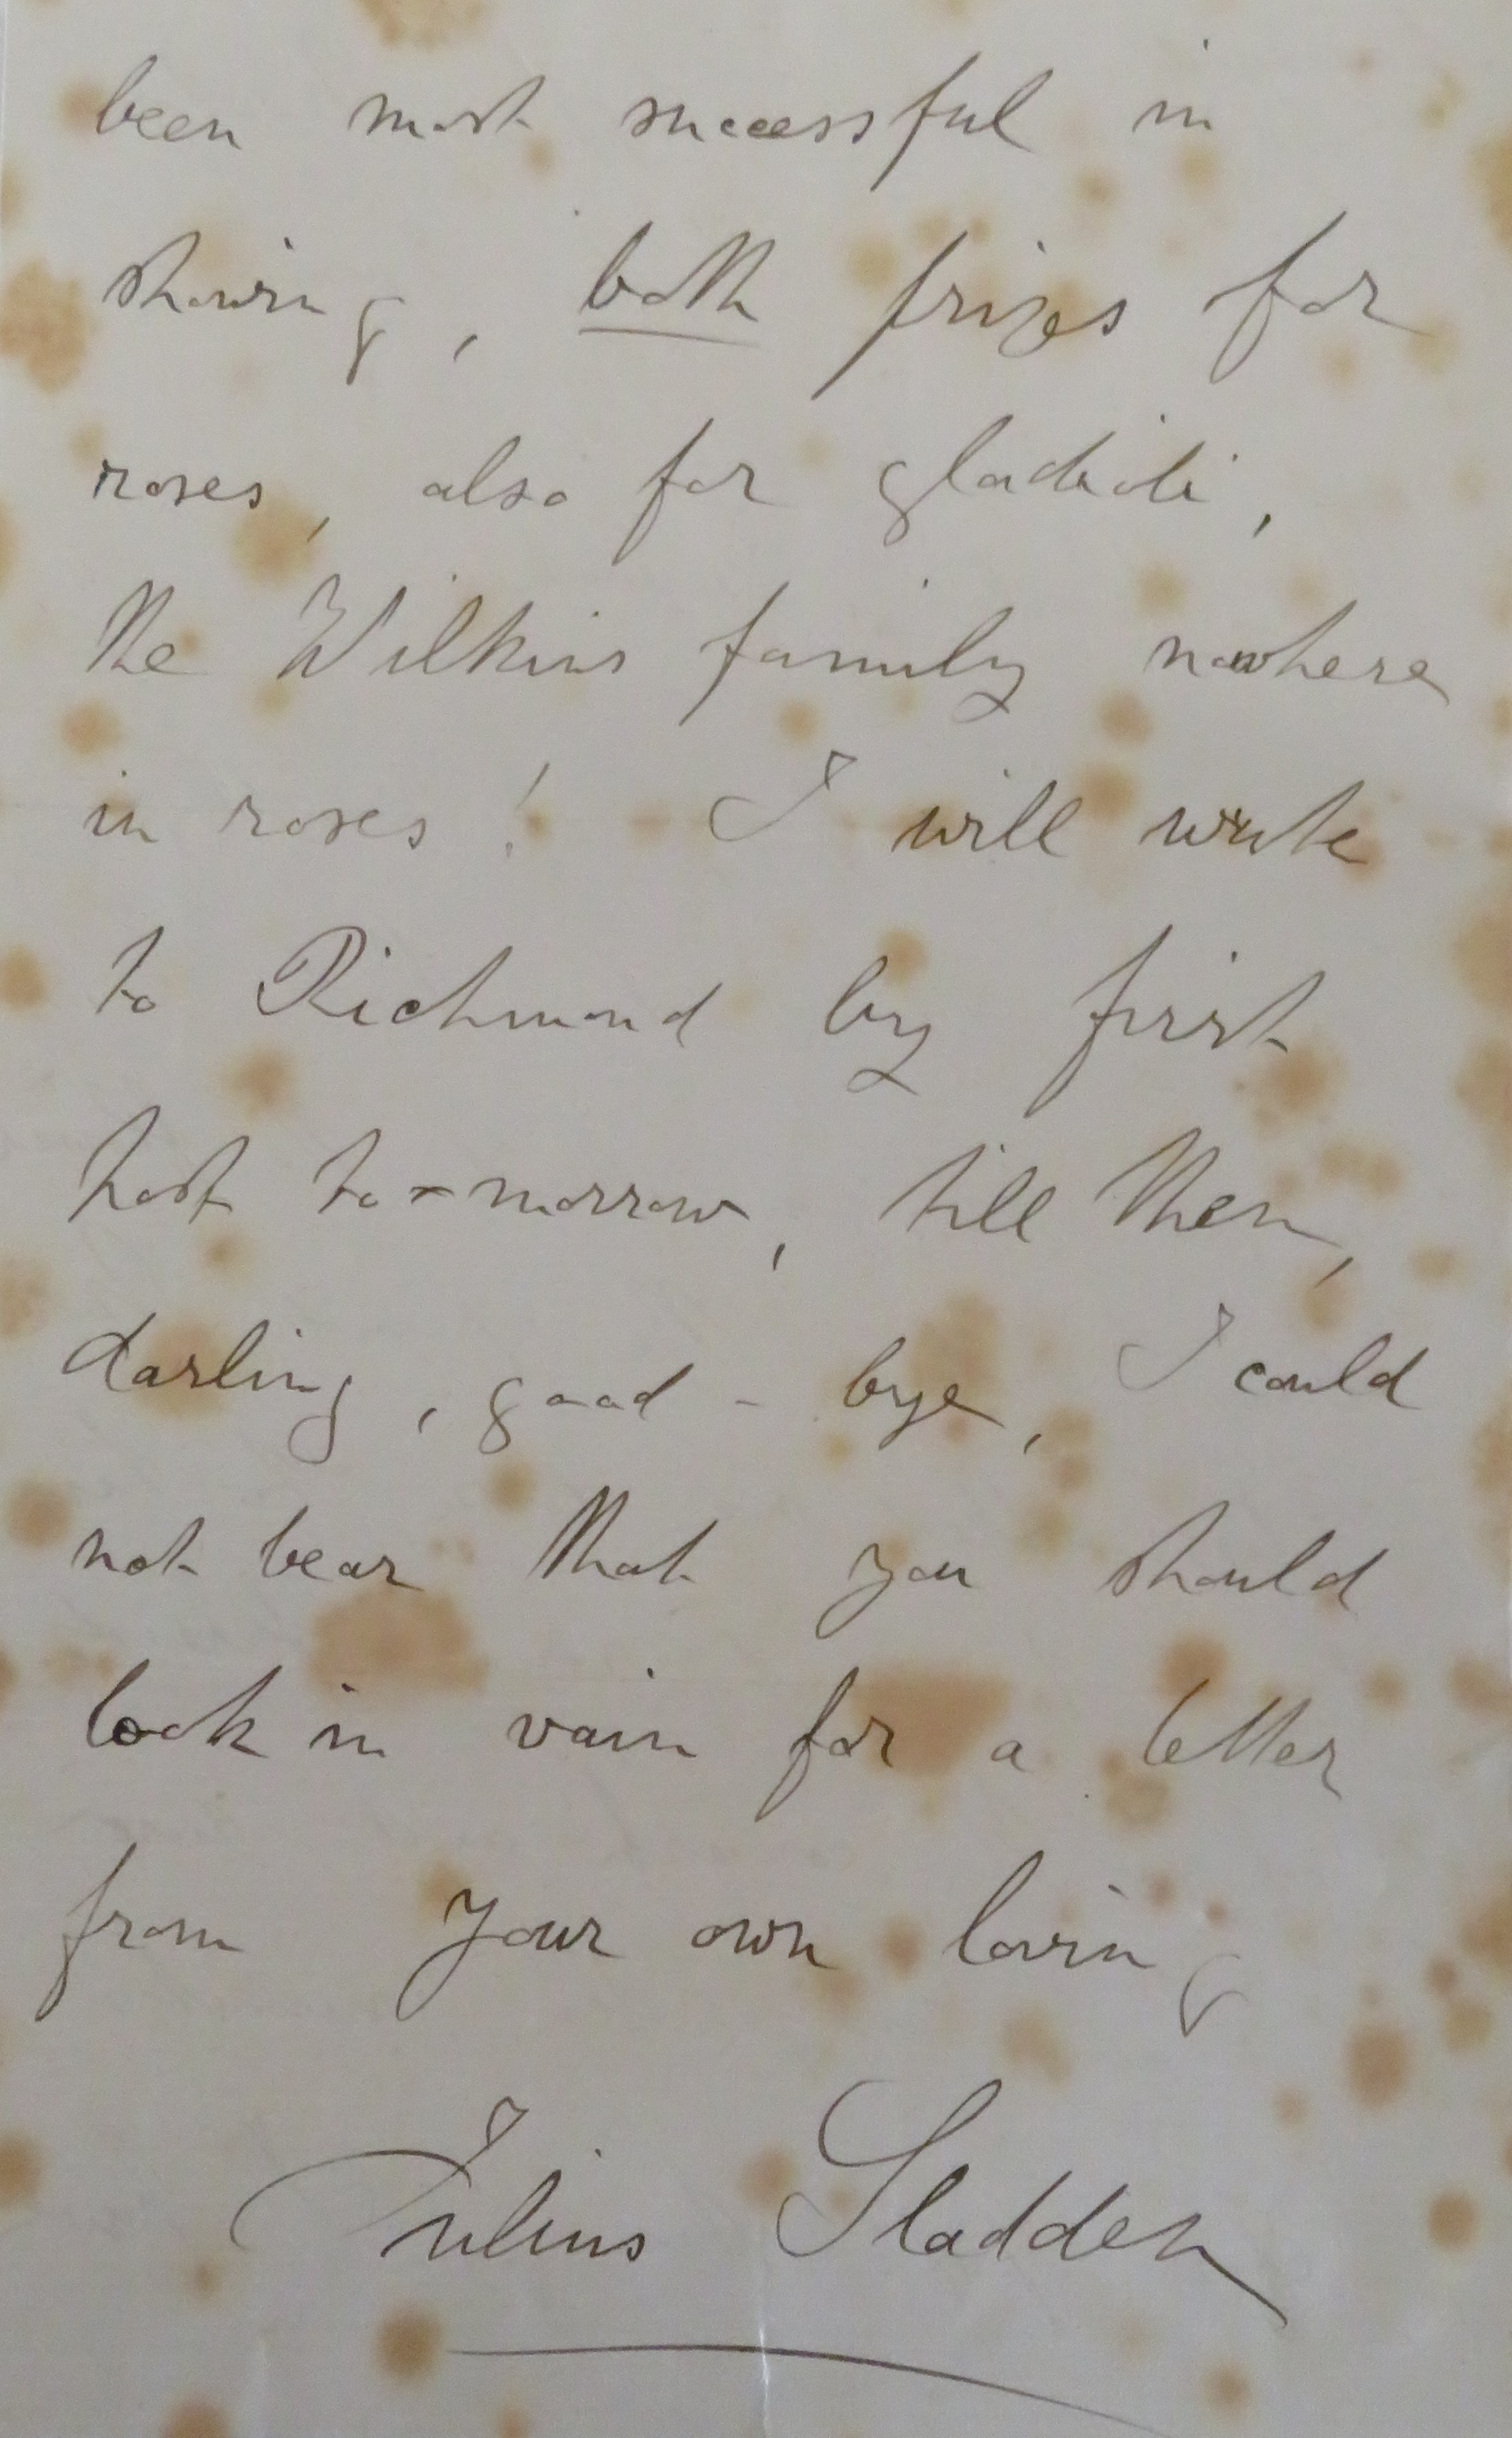 been most successful in
showing, both prizes for
roses, also for gladioli,
the Wilkins family nowhere
in roses! I will write
to Richmond by first
post to-morrow, till then,
darling, good-bye, I could
not bear that you should
look in vain for a letter
from your own loving
Julius Sladden